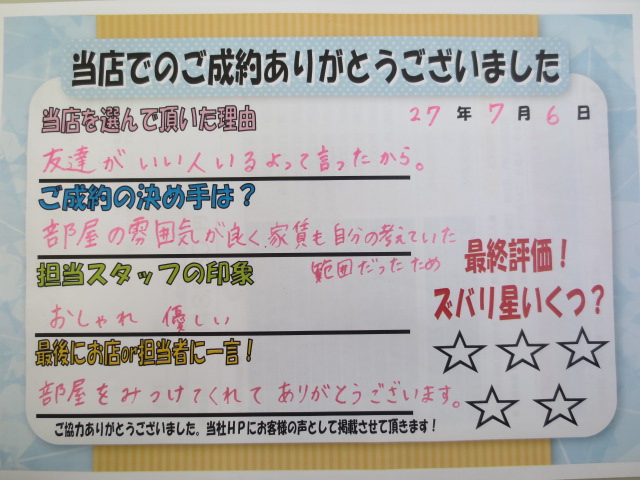 当店でのご成約ありがとうございました
当店を選んで頂いた理由
27年7月6日
友達がいい人いるよって言ったから。
ご成約の決め手は？
部屋の雰囲気が良く、家賃も自分の考えていた
範囲だったため
担当スタッフの印象
おしゃれ 優しい
最終評価！
ズバリ星いくつ？
最後にお店or担当者に一言！
部屋をみつけてくれて ありがとうございます。
ご協力ありがとうございました。当社HPにお客様の声として掲載させて頂きます！